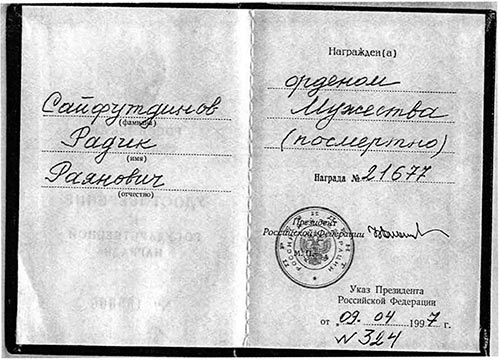 Сайфутдинов
(фамилия)
Радик
(имя)
Раянович
(отчество)
Награжден(а)
орденом
Мужества
(посмертно)
Награда № 21677
Президент
Российской Федерации
М.П.
Указ Президента
Российской Федерации
от 09. 04 1997 г.
N 324